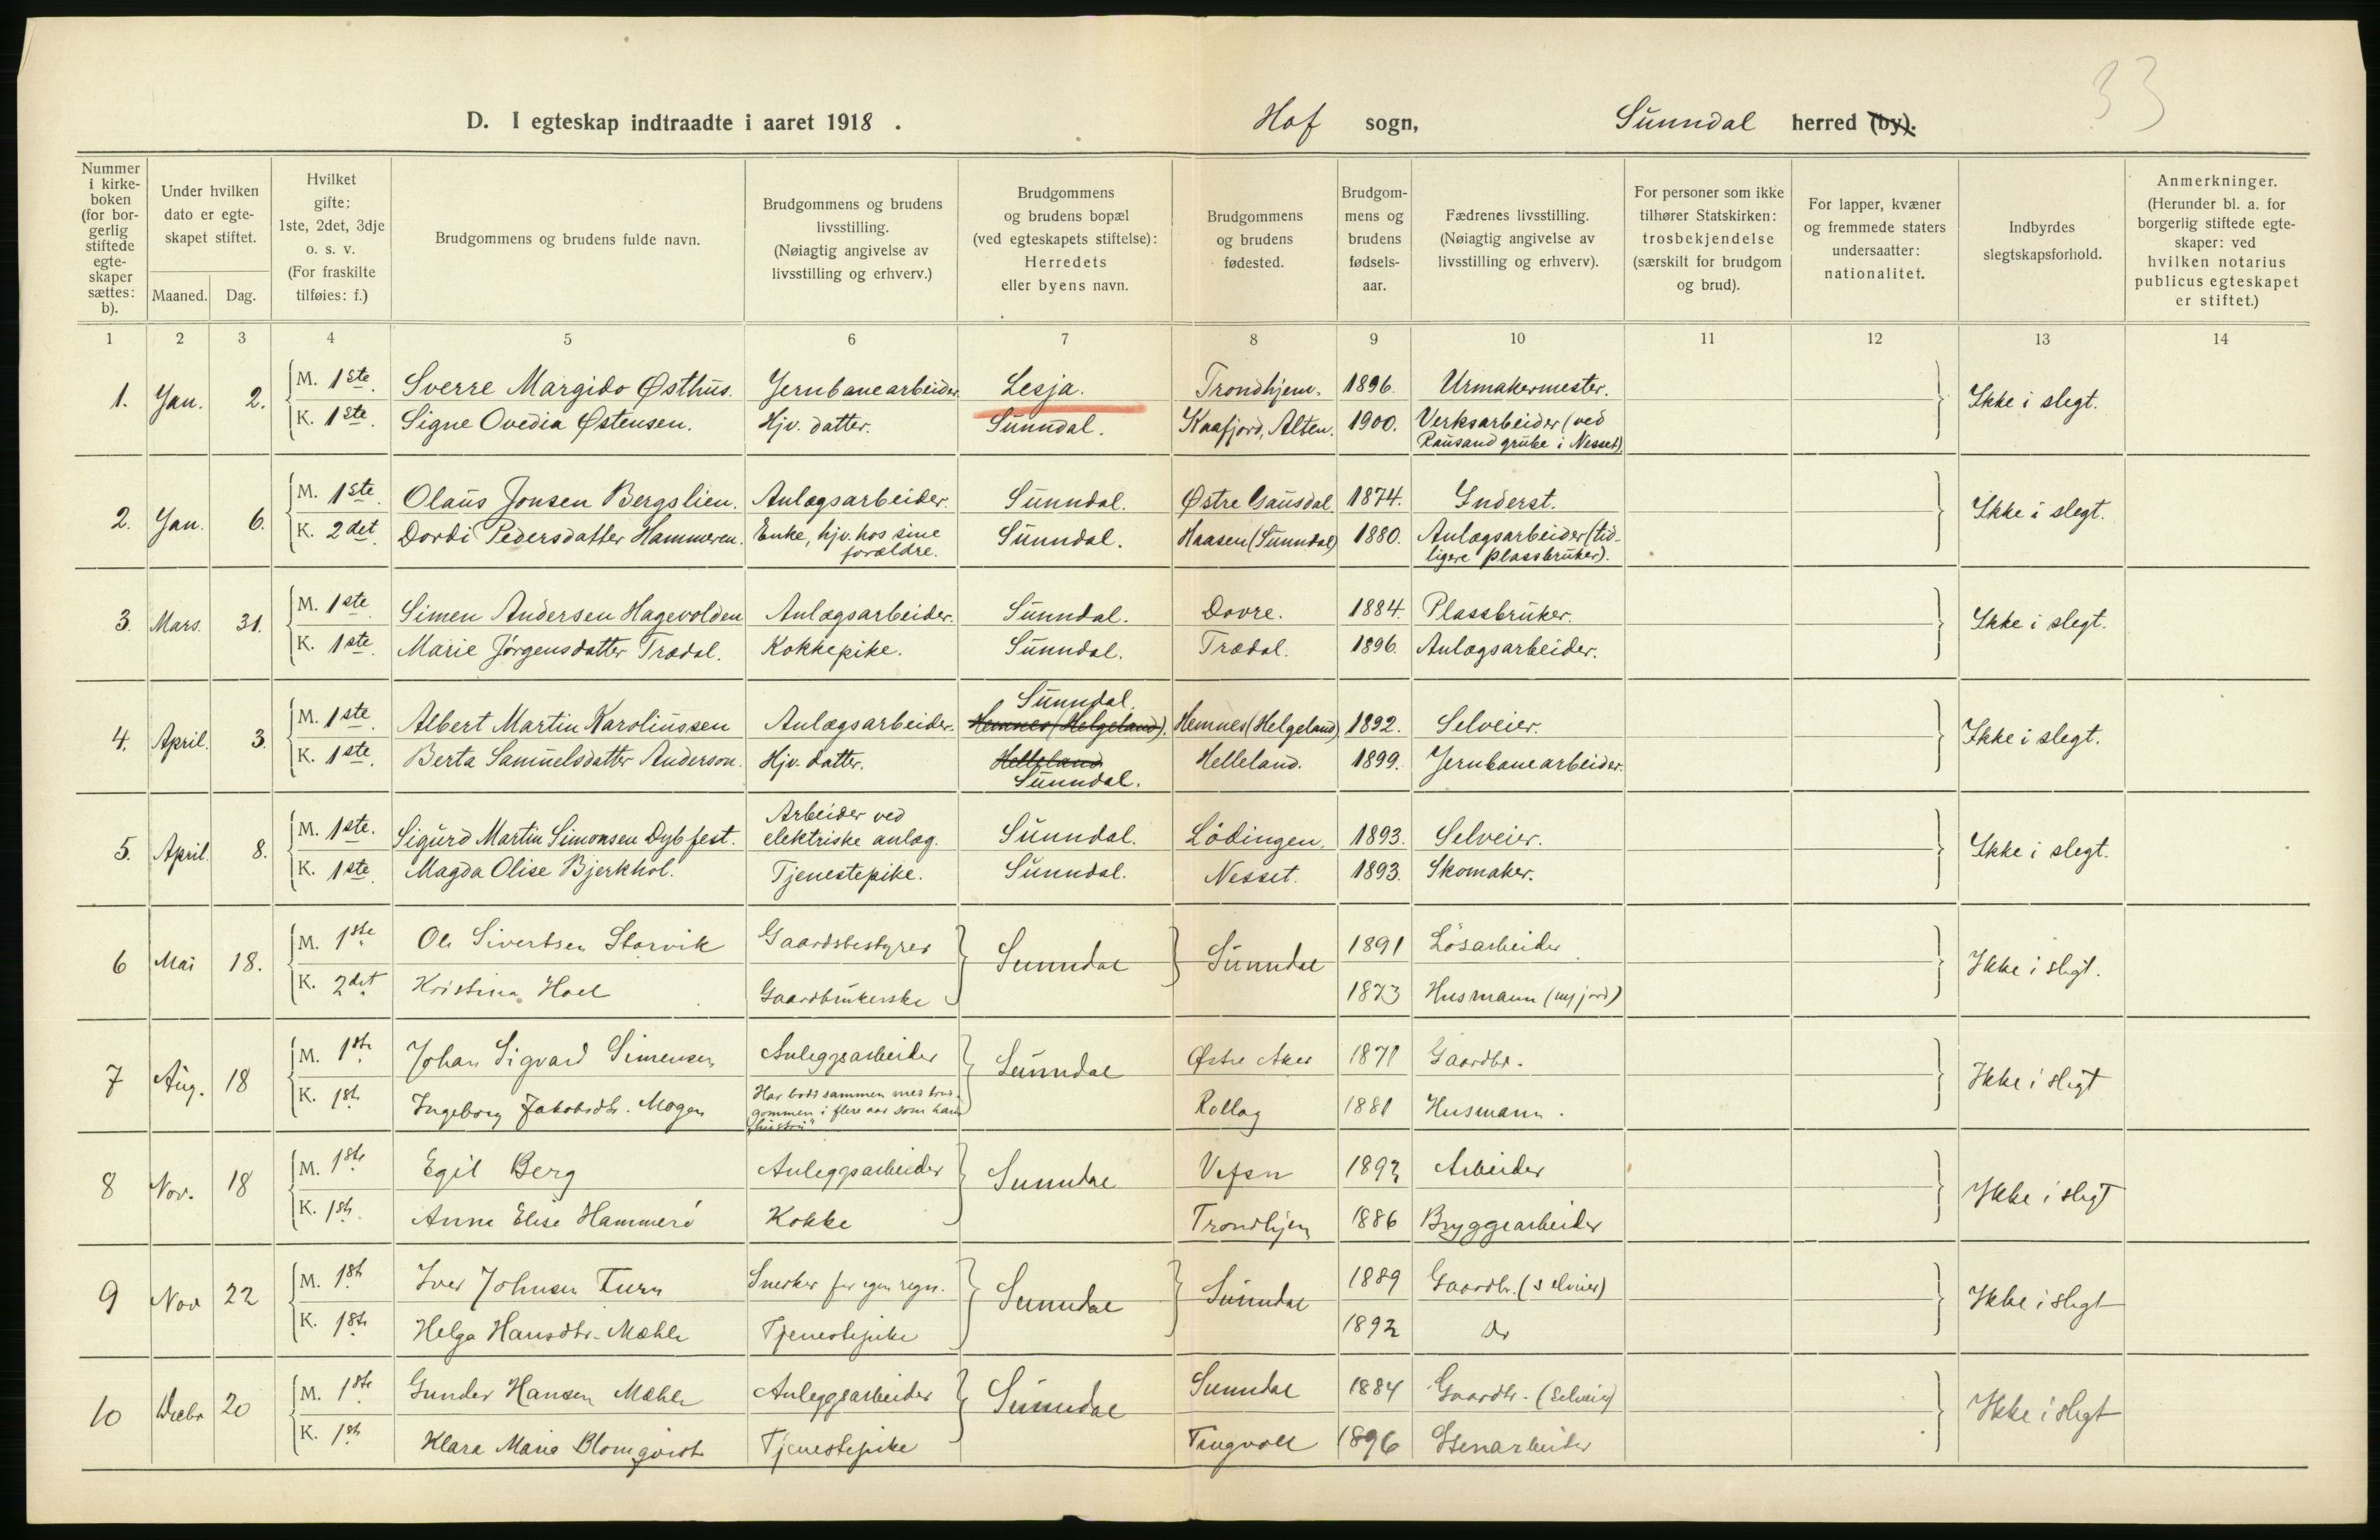 33
D. I egteskap indtraadte i aaret 1918 . Hof sogn, Sunndal herred (by).
Nummer i kirkeboken (for borgerlig stiftede egteskaper sættes: b).
Under hvilken dato er egteskapet stiftet.
Maaned. Dag.
Hvilket gifte: 1ste, 2det, 3dje o. s. v. (For fraskilte tilføies: f.)
Brudgommens og brudens fulde navn.
Brudgommens og brudens livsstilling. (Nøiagtig angivelse av livsstilling og erhverv.)
Brudgommens og brudens bopæl (ved egteskapets stiftelse): Herredets eller byens navn.
Brudgommens og brudens fødested.
Brudgommens og brudens fødselsaar.
Fædrenes livsstilling. (Nøiagtig angivelse av livsstilling og erhverv).
For personer som ikke tilhører Statskirken: trosbekjendelse (særskilt for brudgom og brud).
For lapper, kvæner og fremmede staters undersaatter: nationalitet.
Indbyrdes slegtskapsforhold.
Anmerkninger. (Herunder bl. a. for borgerlig stiftede egteskaper: ved hvilken notarius publicus egteskapet er stiftet.)
1 2 3 4 5 6 7 8 9 10 11 12 13 14
1. Jan. 2. M. 1ste. Sverre Margido Østhus. Jernbanearbeider. Lesja. Trondhjem. 1896. Urmakermester. Ikke i slegt.
K. 1ste. Signe Ovedia Østensen. Hjv. datter. Sunndal. Kaafjord, Alten. 1900. Verksarbeider (ved
Rausand grube i Nesset).
2. Jan. 6. M. 1ste. Olaus Jonsen Bergslien. Anlægsarbeider. Sunndal. Østre Gausdal. 1874. Inderst. Ikke i slegt.
K. 2det. Dordi Pedersdatter Hammeren. Enke, hjv. hos sine forældre. Sunndal. Haasen (Sunndal) 1880. Anlægsarbeider (tid-
ligere plassbruker).
3. Mars. 31. M. 1ste Simen Andersen Hagevolden Anlægsarbeider. Sunndal. Dovre. 1884. Plassbruker. Ikke i slegt.
K. 1ste. Marie Jørgensdatter Trædal. Kokkepike. Sunndal. Trædal. 1896. Anlægsarbeider.
4. April. 3. M. 1ste. Albert Martin Karoliussen Anlægsarbeider. Sunndal. Hemnes (Helgeland). Hemnes (Helgeland) 1892. Selveier. Ikke i slegt.
K. 1ste. Berta Samuelsdatter Anderson. Hjv. datter. Helleland Sunndal. Helleland. 1899. Jernbanearbeider.
5. April. 8. M. 1ste. Sigurd Martin Simonsen Dybfest. Arbeider ved elektriske anlæg. Sunndal. Lödingen. 1893. Selveier. Ikke i slegt.
K. 1ste. Magda Olise Bjerkhol. Tjenestepike. Sunndal. Nesset. 1893. Skomaker.
6 Mai 18. M. 1ste Ole Sivertsen Storvik Gaardsbestyrer Sunndal Sunndal 1891 Lösarbeider Ikke i slegt.
K. 2det Kristina Hoel Gaardbrukerske 1873 Husmann (m/ jord)
7 Aug. 18 M. 1ste Johan Sigvard Simensen Anleggsarbeider Sunndal Østre Aker 1871 Gaardbr. Ikke i slegt
K. 1ste Ingeborg Jakobsdtr. Mogen Har bodd sammen med brud-
gommen i flere aar som hans
"hustru" Rollag 1881 Husmann.
8 Nov. 18 M. 1ste Egil Berg Anleggsarbeider Sunndal Vefsn 1892 Arbeider Ikke i slegt
K. 1ste Anna Elise Hammerö Kokke Trondhjem 1886 Bryggearbeider
9 Nov 22 M. 1ste Iver Johnsen Furu Snerker for egen regn. Sunndal Sunndal 1889 Gaardbr. (selveier) Ikke i slegt
K. 1ste Helga Hansdtr. Mæhle Tjenestepike 1892 Do
10 Decbr 20 M. 1ste Gunder Hansen Mæhle Anleggsarbeider Sunndal Sunndal 1884 Gaardbr. (Selveier) Ikke i slegt
K. 1ste Klara Maria Blomqvist Tjenestepike Tingvoll 1896 Stenarbeider